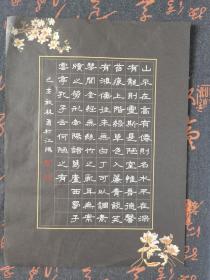 山不在高有僊則名水不在深
有龍則靈斯是陋室惟吾德馨
苔痕上階綠草色入簾青談笑
有鴻儒往來無白丁可以調素
琴閱金經無絲竹之亂耳無案
牘之勞形南陽諸葛廬西蜀子
雲亭孔子云何陋之有
己亥秋